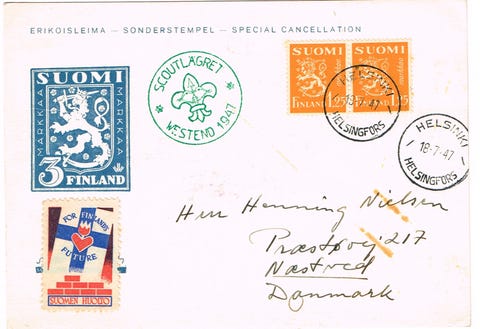 ERIKOISLEIMA — SONDERSTEMPEL — SPECIAL CANCELLATION
SUOMI
MARKKAA
MARKKAA
3 FINLAND
SCOUTLÄGRET
WESTEND 1947
SUOMI
FINLAND 1.25
SUOMI
markkaa
1.25
HELSINKI
19-7-47
HELSINGFORS
HELSINKI
18-7-47
HELSINGFORS
FOR FINLAND'S
FUTURE
SUOMEN HUOLTO
Herr Henning Nielsen
Præstøvej 217
Næstved
Danmark